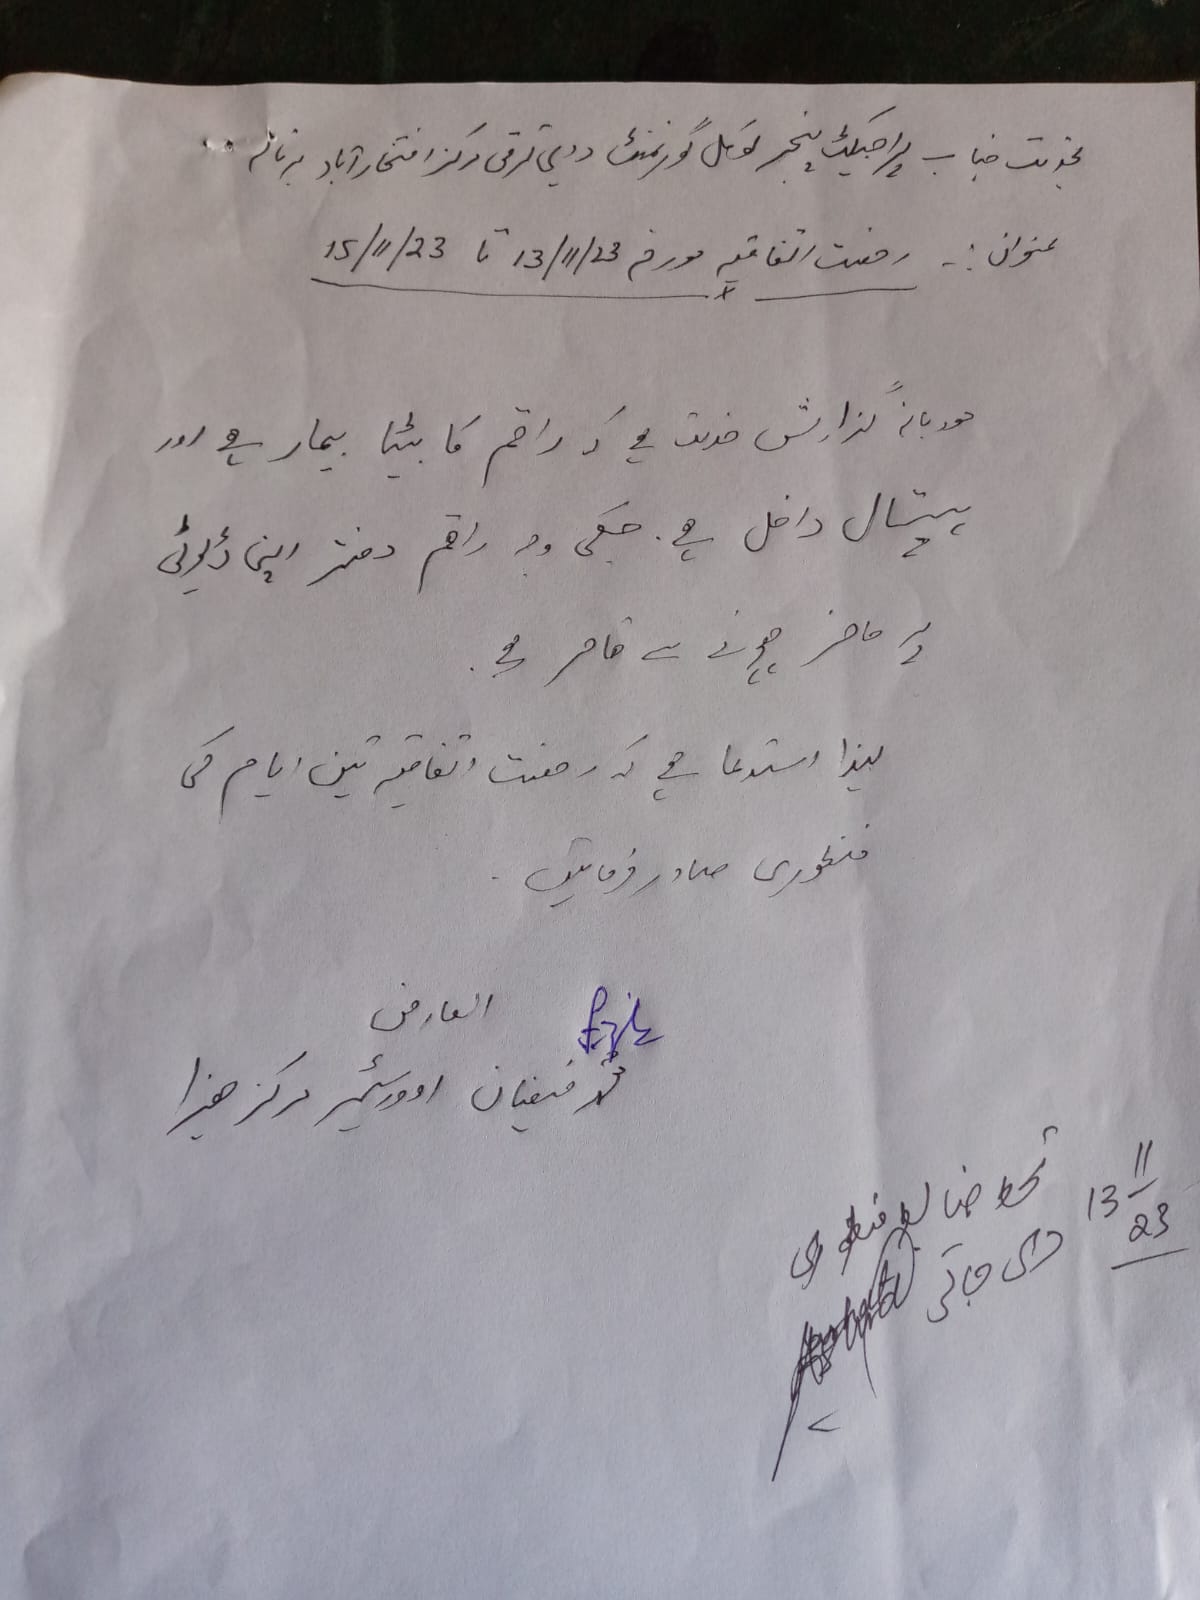 بخدمت جناب پراجیکٹ منیجر لوکل گورنمنٹ دیہی ترقی مرکز افتخار آباد برنالہ
عنوان :۔ رخصت اتفاقیہ مورخہ 13/11/23 تا 15/11/23
مودبانہ گذارش خدمت ہے کہ راقم کا بیٹا بیمار ہے اور
ہسپتال داخل ہے۔ جسکی وجہ راقم دفتر اپنی ڈیوٹی
پر حاضر ہونے سے قاصر ہے۔
لہذا استدعا ہے کہ رخصت اتفاقیہ تین ایام کی
منظوری صادر فرمائیں۔
العارض
محمد فیضان اوورسیئر مرکز ھیزا
تحت ضابطہ منظوری
دی جاتی
13/11/23